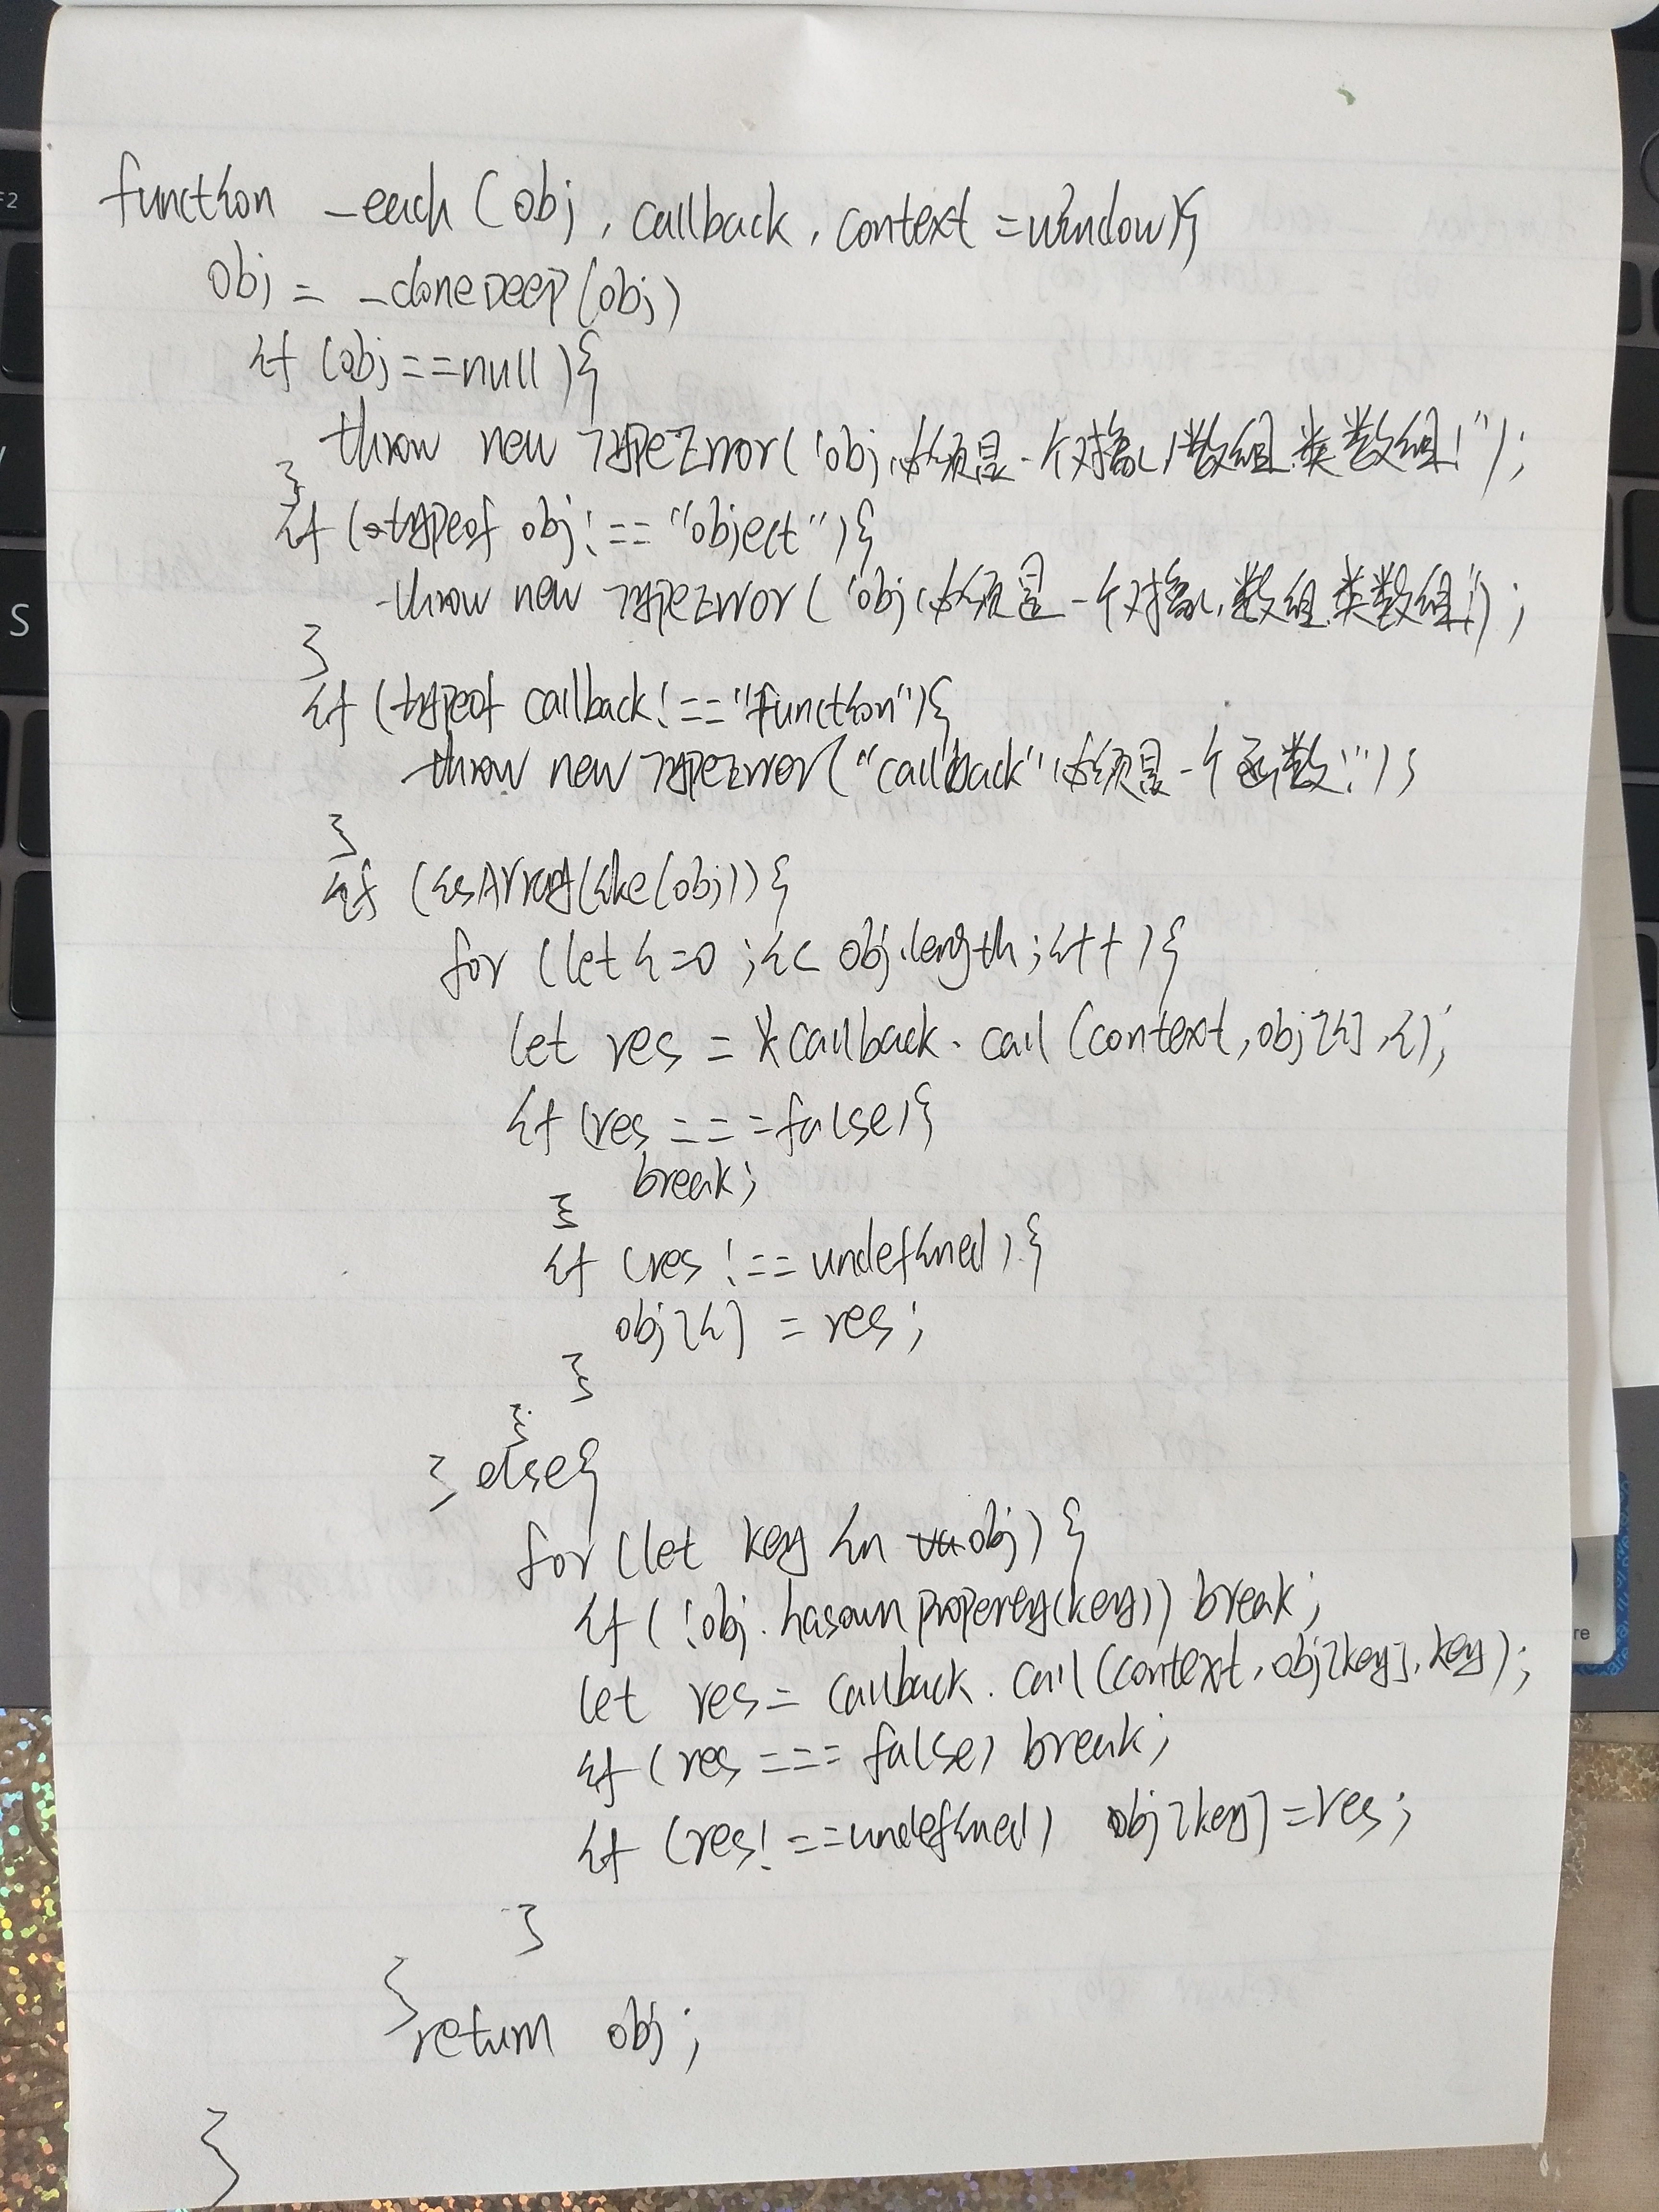 function _each(obj, callback, context=window){
obj = _cloneDeep(obj)
if (obj==null){
throw new TypeError('obj必须是一个对象,数组,类数组!");
}
if (typeof obj!=="object"){
throw new TypeError('obj必须是一个对象,数组,类数组!');
}
if (typeof callback!=="function"){
throw new TypeError("callback"必须是一个函数!");
}
if (isArrayLike(obj)){
for (let i=0;i< obj.length;i++){
let res = callback.call(context,obj[i],i);
if (res===false){
break;
}
if (res !== undefined){
obj[i] = res;
}
}
} else{
for(let key in obj){
if(!obj.hasownProperey(key)) break;
let res= callback.call(context,obj[key],key);
if (res === false) break;
if (res!==undefined) obj[key]=res;
}
}return obj;
}
F2
S
re